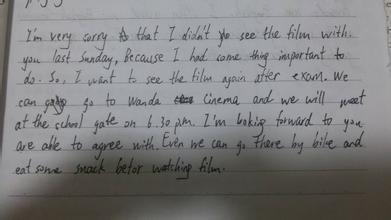 I'm very sorry that I didn't go see the film with
you last Sunday, Because I had some thing important to
do. So, I want to see the film again after exam. We
can go to Wanda Cinema and we will meet
at the school gate on 6.30 p.m. I'm looking forward to you
are able to agree with. Even we can go there by bike and
eat some snack befor watching film.